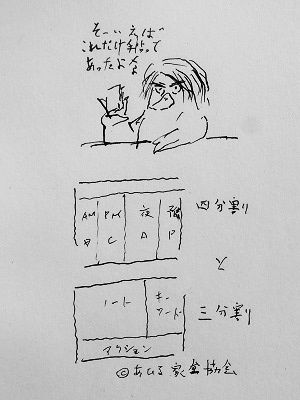 そーいえば
これだけ手帖って
あったよな
AM
PM
夜
B
C
A
P
四分割り
と
ノート
キーワード
三分割り
アクション
©あひる家金協会